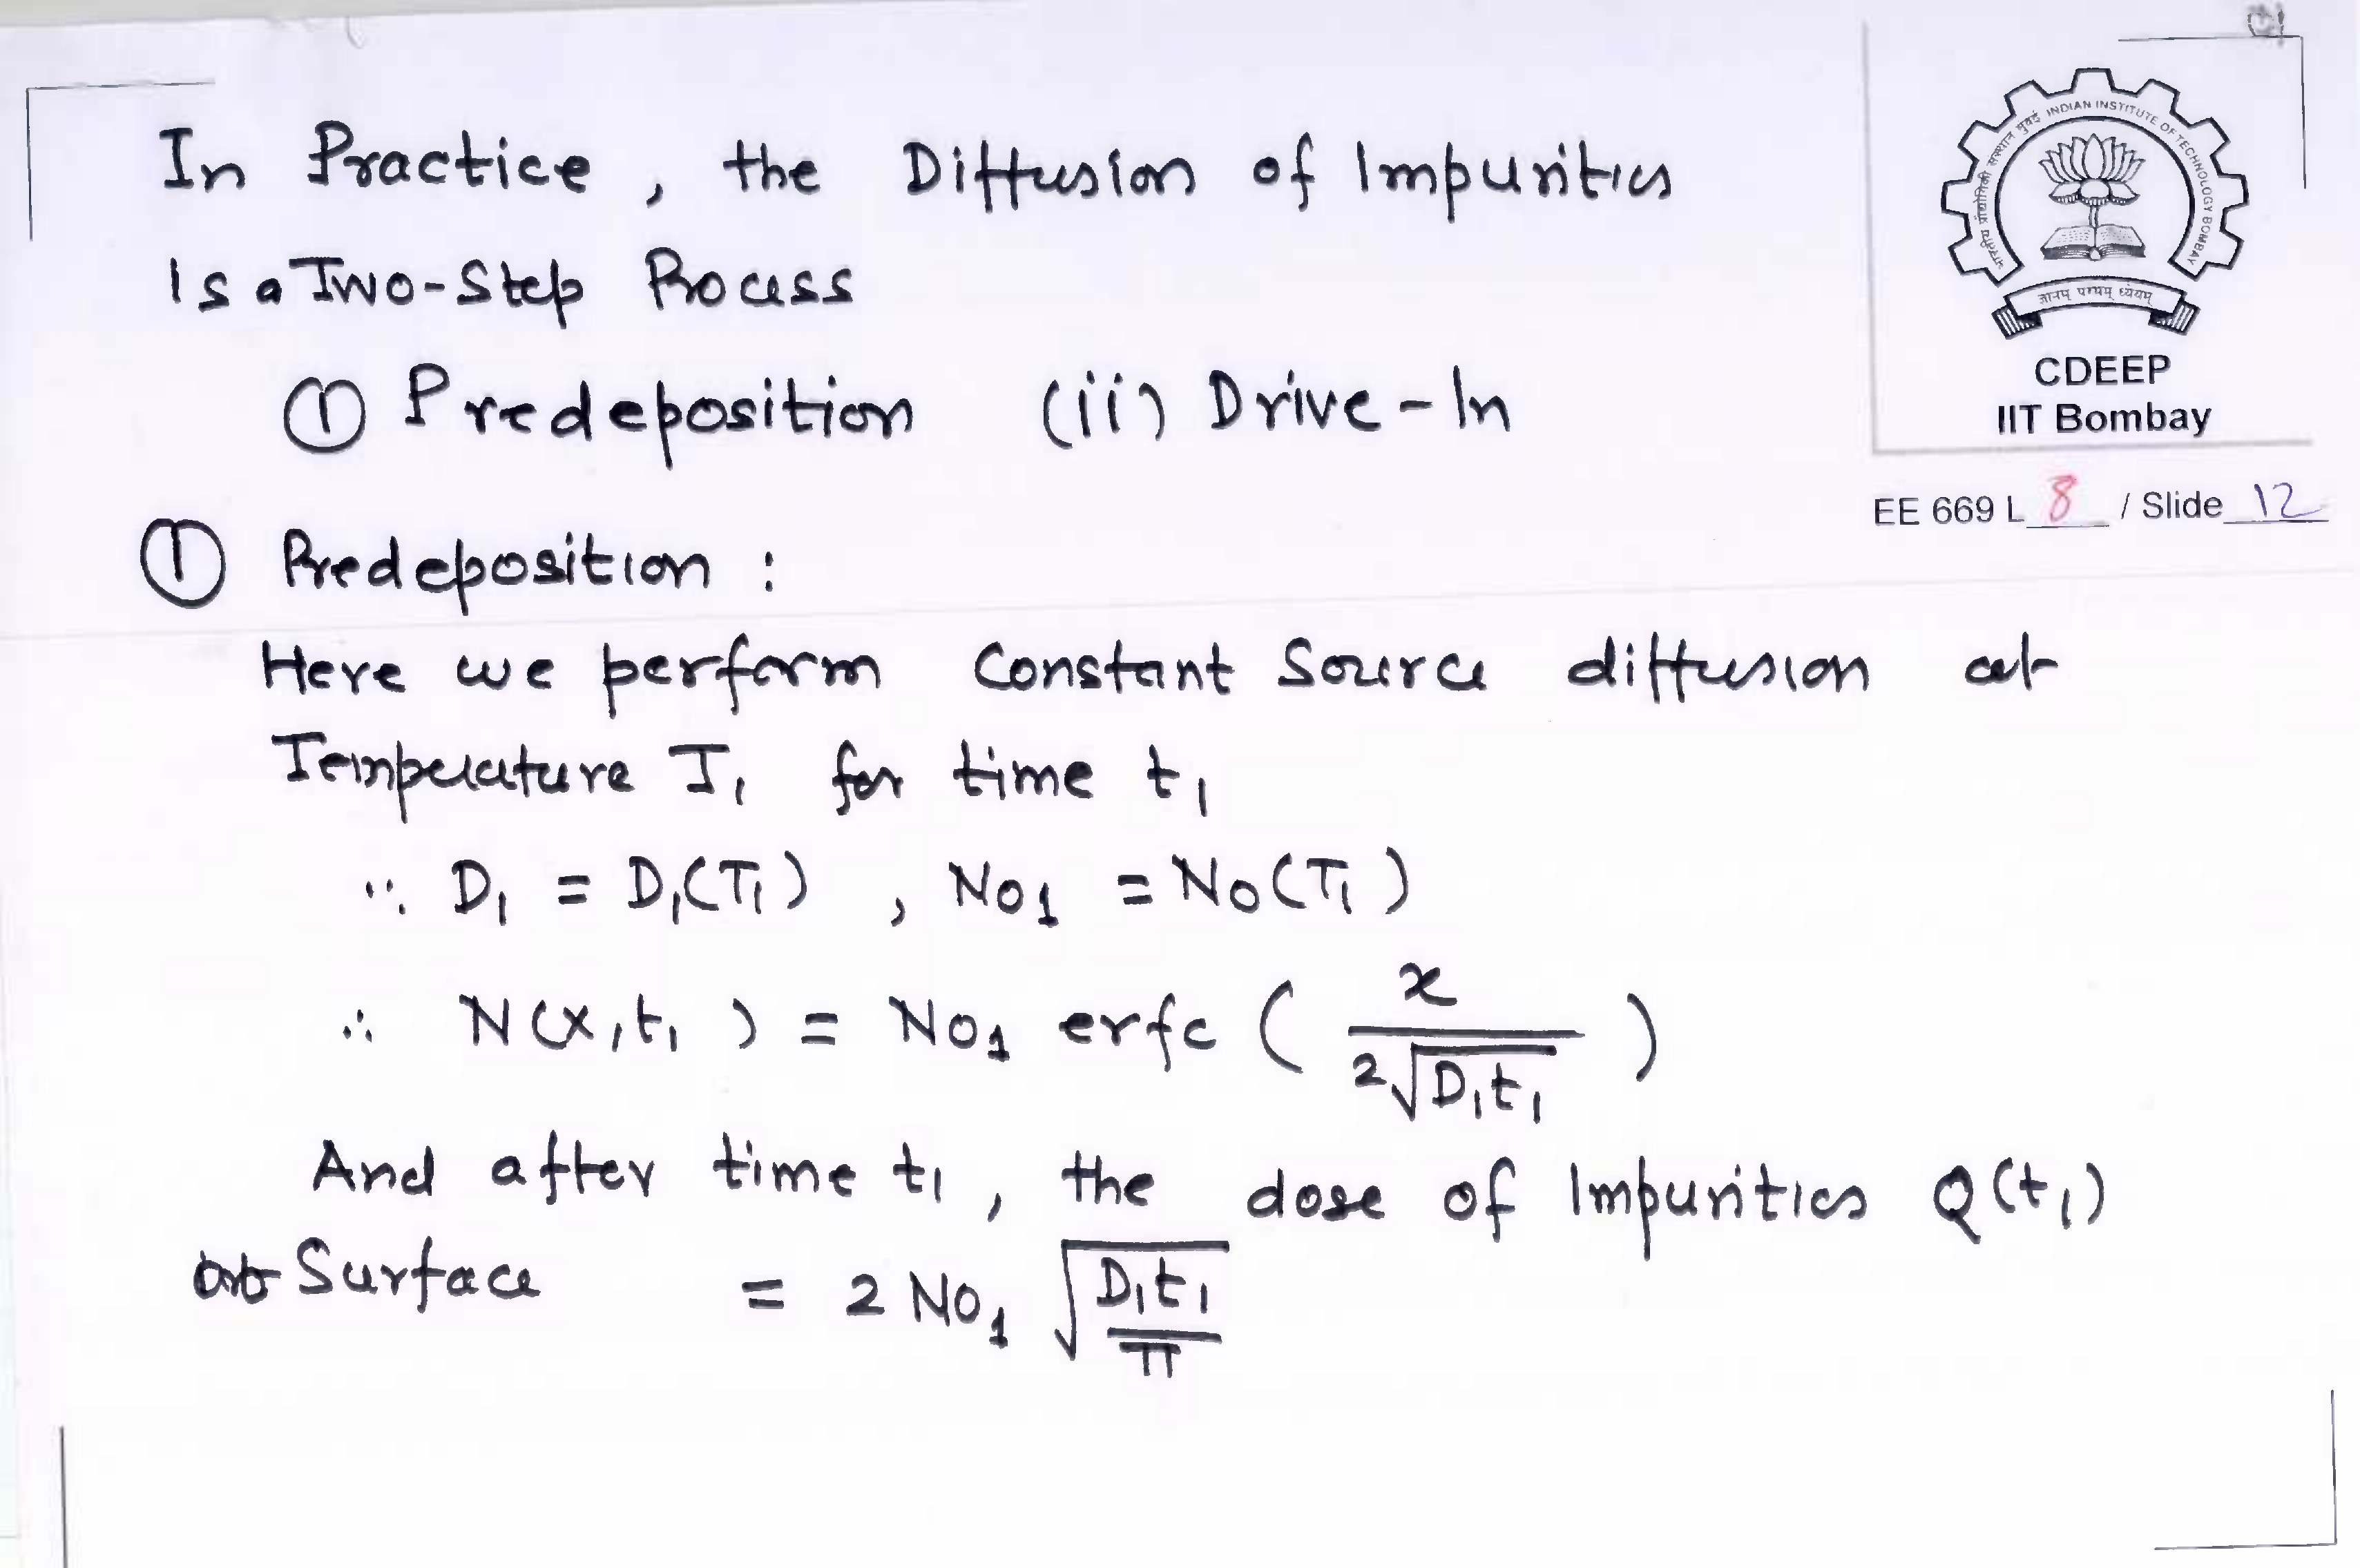 In Practice, the Diffusion of Impurities
Is a Two-Step Process
(i) Predeposition (ii) Drive-In
INDIAN INSTITUTE OF TECHNOLOGY BOMBAY
ज्ञानम् परमम् ध्येयम्
CDEEP
IIT Bombay
EE 669 L 8 / Slide 12
① Predeposition :
Here we perform Constant Source diffusion at
Temperature T₁ for time t₁
∵ D₁ = D₁(T₁) , N01 = N0(T₁)
∴ N(x,t₁) = N01 erfc ( x / 2√D₁t₁ )
And after time t₁, the dose of Impurities Q(t₁)
at Surface = 2 N01 √(D₁t₁ / π)